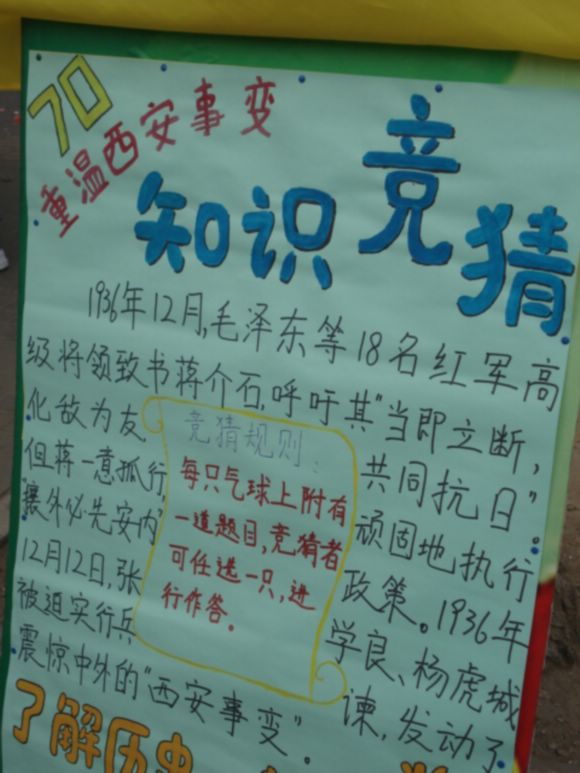 70
重温西安事变
知识竞猜
1936年12月,毛泽东等18名红军高
级将领致书蒋介石,呼吁其"当即立断,
化敌为友, 共同抗日"。
但蒋一意孤行, 顽固地执行
攘外必先安内" 政策。1936年
12月12日,张 学良、杨虎城
被迫实行兵 谏,发动了
震惊中外的"西安事变"。
竞猜规则:
每只气球上附有
一道题目,竞猜者
可任选一只,进
行作答。
了解历史